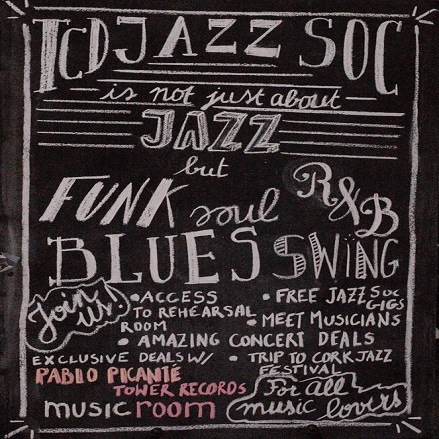 TCD JAZZ SOC
is not just about
JAZZ
but
FUNK soul R&B
BLUES SWING
Join Us!
• ACCESS TO REHEARSAL ROOM
• FREE JAZZ SOC GIGS
• MEET MUSICIANS
• AMAZING CONCERT DEALS
EXCLUSIVE DEALS W/
PABLO PICANTÉ
TOWER RECORDS
music room
• TRIP TO CORK JAZZ FESTIVAL
For All music lovers